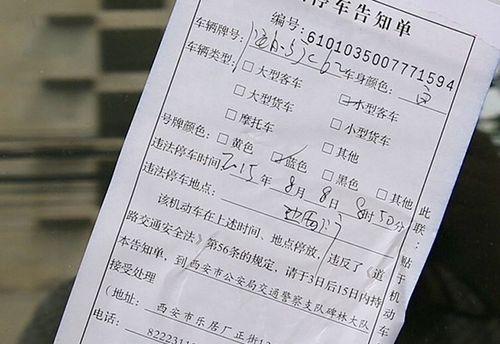 停车告知单
编号: 6101035007771594
车辆牌号: 车身颜色: 白
车辆类型: □大型客车 □小型客车
□大型货车 □小型货车
□摩托车 □其他
号牌颜色: □黄色 □蓝色 □黑色 □其他
违法停车时间 2015年 8月 8日 8时50分
违法停车地点:
该机动车在上述时间、地点停放,违反了《道
路交通安全法》第56条的规定,请于3日后15日内持
本告知单,到西安市公安局交通警察支队碑林大队
接受处理
(地址: 西安市乐居厂正街12
电话: 8222311
此联: 贴于机动车